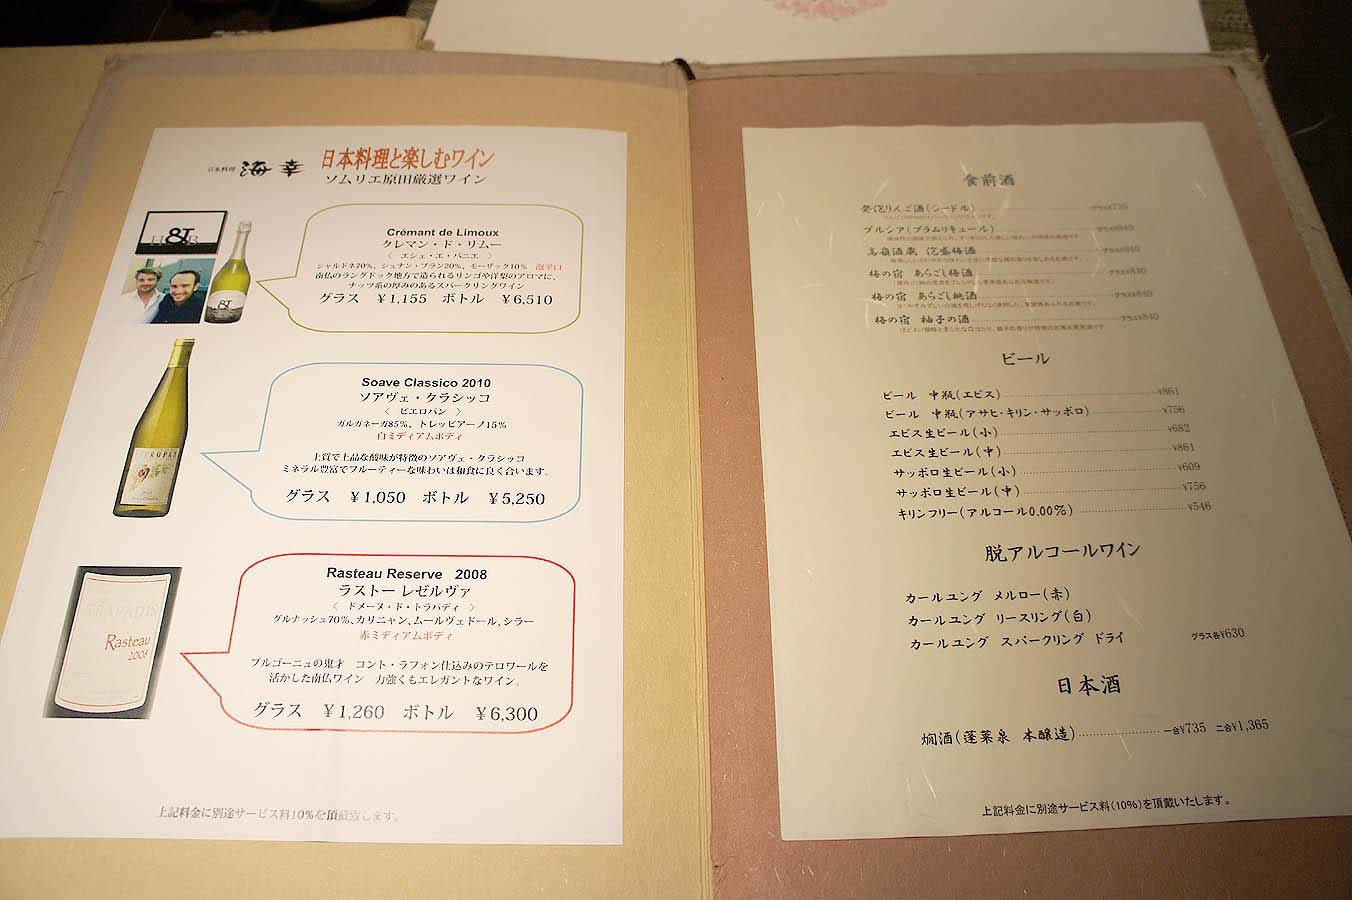 日本料理 海幸 日本料理と楽しむワイン
ソムリエ原田厳選ワイン
H&B
Crémant de Limoux
クレマン・ド・リムー
〈 エシェ・エ・バニエ 〉
シャルドネ70%、シュナン・ブラン20%、モーザック10% 泡辛口
南仏のラングドック地方で造られるリンゴや洋梨のアロマに、
ナッツ系の厚みのあるスパークリングワイン
グラス ¥1,155 ボトル ¥6,510
Soave Classico 2010
ソアヴェ・クラシッコ
〈 ピエロパン 〉
ガルガネーガ85%、トレッビアーノ15%
白ミディアムボディ
上質で上品な酸味が特徴のソアヴェ・クラシッコ
ミネラル豊富でフルーティーな味わいは和食に良く合います。
グラス ¥1,050 ボトル ¥5,250
TRAPADIS
Rasteau
2008
Rasteau Reserve 2008
ラストー レゼルヴァ
〈 ドメーヌ・ド・トラパディ 〉
グルナッシュ70%、カリニャン、ムールヴェドール、シラー
赤ミディアムボディ
ブルゴーニュの鬼才 コント・ラフォン仕込みのテロワールを
活かした南仏ワイン 力強くもエレガントなワイン。
グラス ¥1,260 ボトル ¥6,300
上記料金に別途サービス料10%を頂戴致します。
食前酒
発泡りんご酒(シードル) グラス¥735
プルシア(プラムリキュール) グラス¥840
高嶺酒蔵 泡盛梅酒 グラス¥840
梅の宿 あらごし梅酒 グラス¥840
梅の宿 あらごし桃酒 グラス¥840
梅の宿 柚子の酒 グラス¥840
ビール
ビール 中瓶(エビス) ¥861
ビール 中瓶(アサヒ・キリン・サッポロ) ¥756
エビス生ビール(小) ¥682
エビス生ビール(中) ¥861
サッポロ生ビール(小) ¥609
サッポロ生ビール(中) ¥756
キリンフリー(アルコール0.00%) ¥546
脱アルコールワイン
カールユング メルロー(赤)
カールユング リースリング(白)
カールユング スパークリング ドライ グラス各¥630
日本酒
燗酒(蓬莱泉 本醸造) 一合¥735 二合¥1,365
上記料金に別途サービス料(10%)を頂戴いたします。